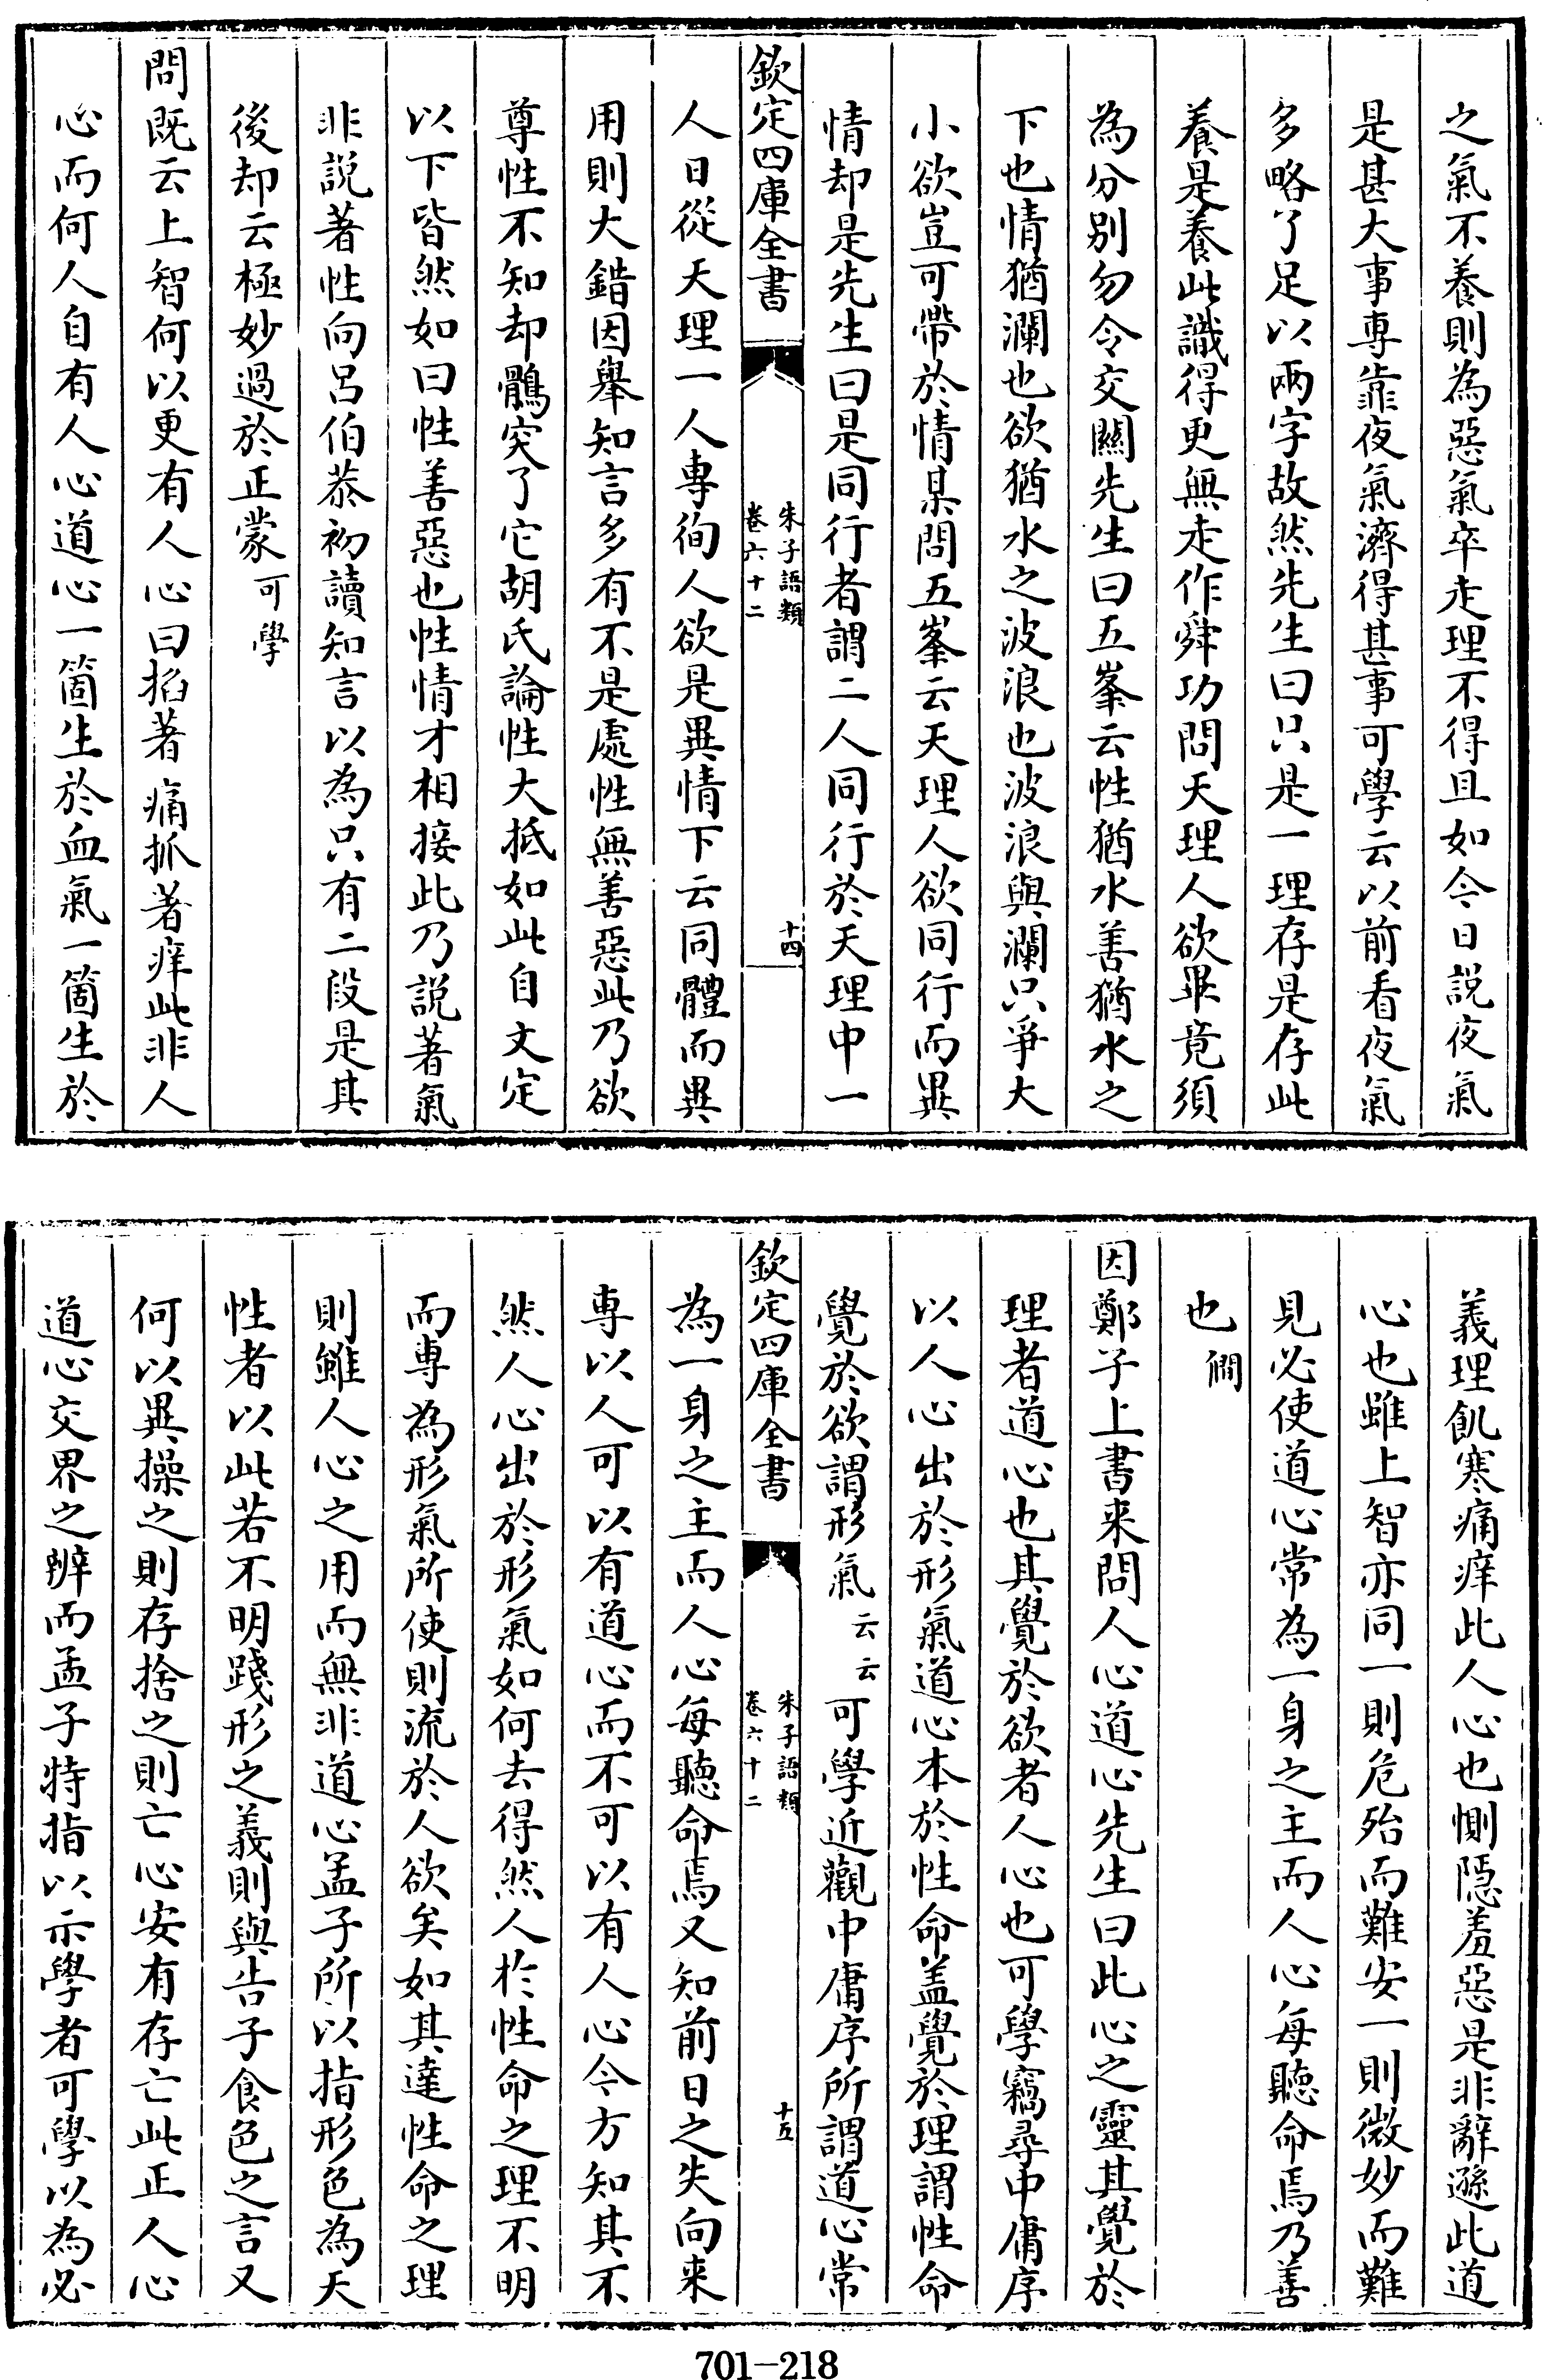 之氣不養則為惡氣卒走理不得且如今日説夜氣
是甚大事專靠夜氣濟得甚事可學云以前看夜氣
多略了足以兩字故然先生曰只是一理存是存此
養是養此識得更無走作舜功問天理人欲畢竟須
為分别勿令交關先生曰五峯云性猶水善猶水之
下也情猶瀾也欲猶水之波浪也波浪與瀾只爭大
小欲豈可帶於情某問五峯云天理人欲同行而異
情却是先生曰是同行者謂二人同行於天理中一
欽定四庫全書
朱子語類
卷六十二
十四
人日從天理一人專徇人欲是異情下云同體而異
用則大錯因舉知言多有不是處性無善惡此乃欲
尊性不知却鶻突了它胡氏論性大抵如此自文定
以下皆然如曰性善惡也性情才相接此乃説著氣
非説著性向呂伯恭初讀知言以為只有二段是其
後却云極妙過於正蒙可學
問既云上智何以更有人心曰掐著痛抓著痒此非人
心而何人自有人心道心一箇生於血氣一箇生於
義理飢寒痛痒此人心也惻隠羞惡是非辭遜此道
心也雖上智亦同一則危殆而難安一則微妙而難
見必使道心常為一身之主而人心每聽命焉乃善
也僩
因鄭子上書来問人心道心先生曰此心之靈其覺於
理者道心也其覺於欲者人心也可學竊尋中庸序
以人心出於形氣道心本於性命盖覺於理謂性命
覺於欲謂形氣云云可學近觀中庸序所謂道心常
欽定四庫全書
朱子語類
卷六十二
十五
為一身之主而人心每聽命焉又知前日之失向来
專以人可以有道心而不可以有人心今方知其不
然人心出於形氣如何去得然人扵性命之理不明
而專為形氣所使則流於人欲矣如其達性命之理
則雖人心之用而無非道心孟子所以指形色為天
性者以此若不明踐形之義則與告子食色之言又
何以異操之則存捨之則亡心安有存亡此正人心
道心交界之辨而孟子特指以示學者可學以為必
701-218